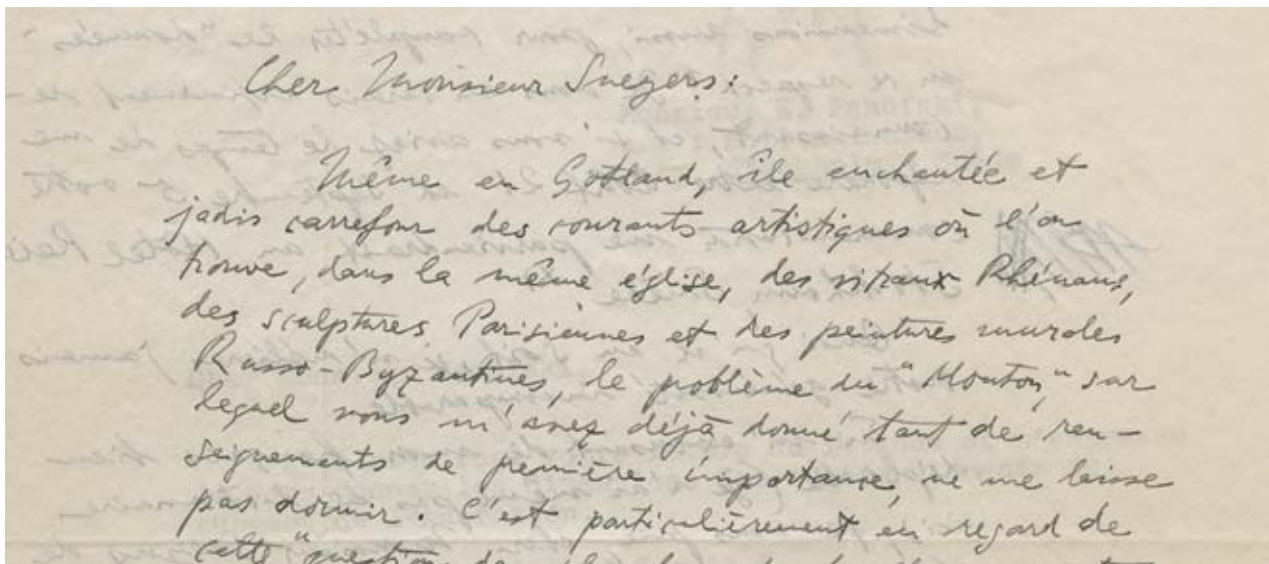 Cher Monsieur Sneyers:
Même en Gotland, île enchantée et
jadis carrefour des courants artistiques où l'on
trouve, dans la même église, des vitraux Rhénans,
des sculptures Parisiennes et des peintures murales
Russo-Byzantines, le problème du "Mouton," sur
lequel vous m'avez déjà donné tant de ren-
seignements de première importance, ne me laisse
pas dormir. C'est particulièrement en regard de
cette "question